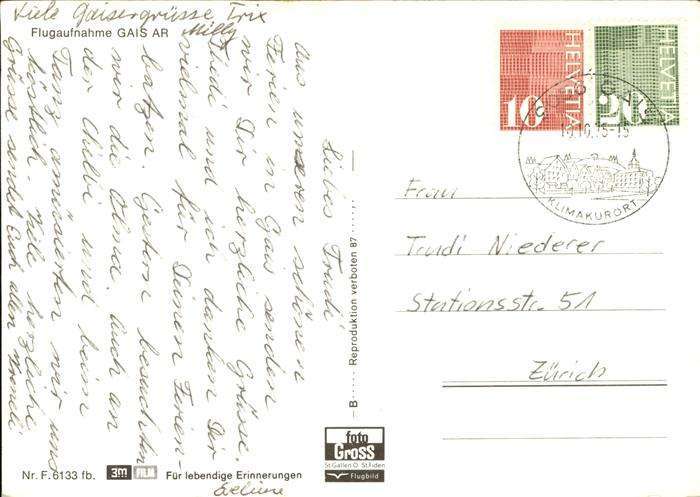 Viele Gaisergrüsse Trix
Milly
Flugaufnahme GAIS AR
Liebes Trudi
Aus unseren schönen
Ferien in Gais senden
wir Dir herzliche Grüsse.
Trudi und ich danken Dir
vielmal für Deinen Ferien-
batzen. Gestern besuchten
wir die Olma. Auch an
der Chilbi und beim
Tanz amüsierten wir uns
köstlich. Viele herzliche
Grüsse sendet Euch allen Vreneli
Eveline
HELVETIA
10
HELVETIA
20
GAIS
10.75-15
KLIMAKURORT
Frau
Trudi Niederer
Stationsstr. 51
Zürich
— B ...... Reproduktion verboten 87
foto
GROSS
St.Gallen O. St.Fiden
Flugbild
Nr. F. 6133 fb.
3M FILM
Für lebendige Erinnerungen